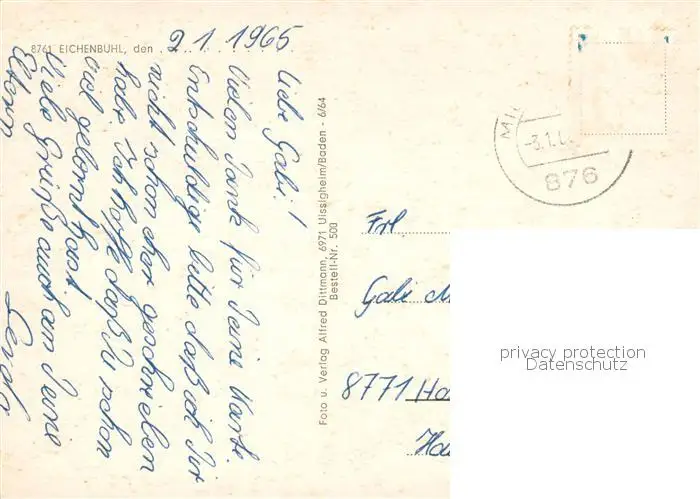 8761 EICHENBÜHL, den 2 1 1965
Liebe Gabi!
Vielen Dank für Deine Karte.
Entschuldige bitte daß ich Dir
nicht schon eher geschrieben
habe. Ich hoffe daß Du schon
viel gelernt hast.
Viele Grüße auch an Deine
Eltern
Foto u. Verlag Alfred Dittmann, 6971 Uissigheim/Baden - 6/64
Bestell-Nr. 500
MI
-3.1.
876
Frl
Gabi M
8771 Ha
privacy protection
Datenschutz